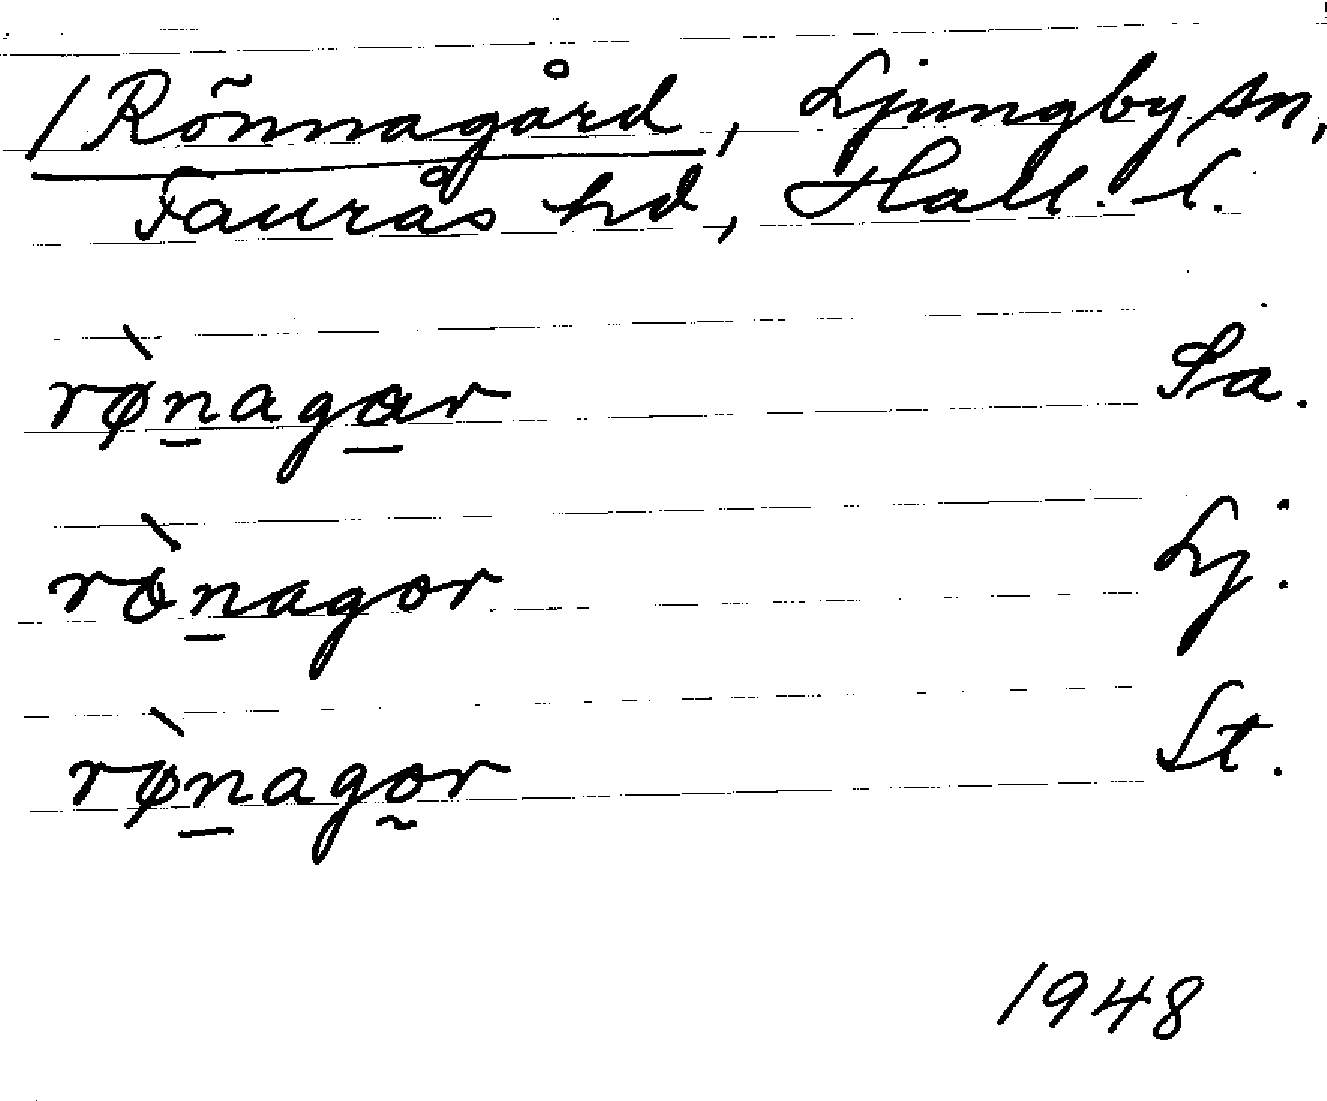 / Rönnagård, Ljungby sn,
Faurås hd, Hall. l.
rø̀nagar Sa.
rònagor Lj.
rø̀nagor St.
1948